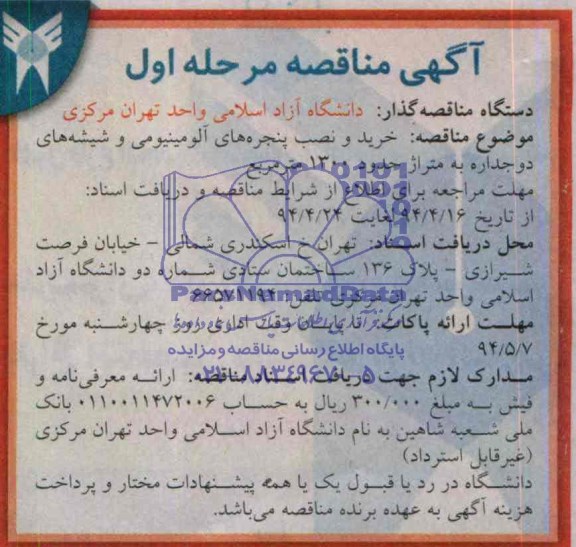 آگهی مناقصه مرحله اول
دستگاه مناقصه‌گذار: دانشگاه آزاد اسلامی واحد تهران مرکزی
موضوع مناقصه: خرید و نصب پنجره‌های آلومینیومی و شیشه‌های
دوجداره به متراژ حدود ۱۳۰۰ مترمربع
مهلت مراجعه برای اطلاع از شرایط مناقصه و دریافت اسناد:
از تاریخ ۹۴/۴/۱۶ لغایت ۹۴/۴/۲۴
محل دریافت اسناد: تهران خ اسکندری شمالی – خیابان فرصت
شیرازی – پلاک ۱۳۶ ساختمان ستادی شماره دو دانشگاه آزاد
اسلامی واحد تهران مرکزی تلفن
ParsNamadData
مهلت ارائه پاکات: تا پایان وقت اداری روز چهارشنبه مورخ
پایگاه اطلاع رسانی مناقصه و مزایده
۹۴/۵/۷
مدارک لازم جهت دریافت اسناد مناقصه: ارائه معرفی‌نامه و
۰۲۱-۸۸۳۴۹۶۷۰-۵
فیش به مبلغ ۳۰۰/۰۰۰ ریال به حساب ۰۱۱۰۰۱۱۴۷۲۰۰۶ بانک
ملی شعبه شاهین به نام دانشگاه آزاد اسلامی واحد تهران مرکزی
(غیرقابل استرداد)
دانشگاه در رد یا قبول یک یا همه پیشنهادات مختار و پرداخت
هزینه آگهی به عهده برنده مناقصه می‌باشد.